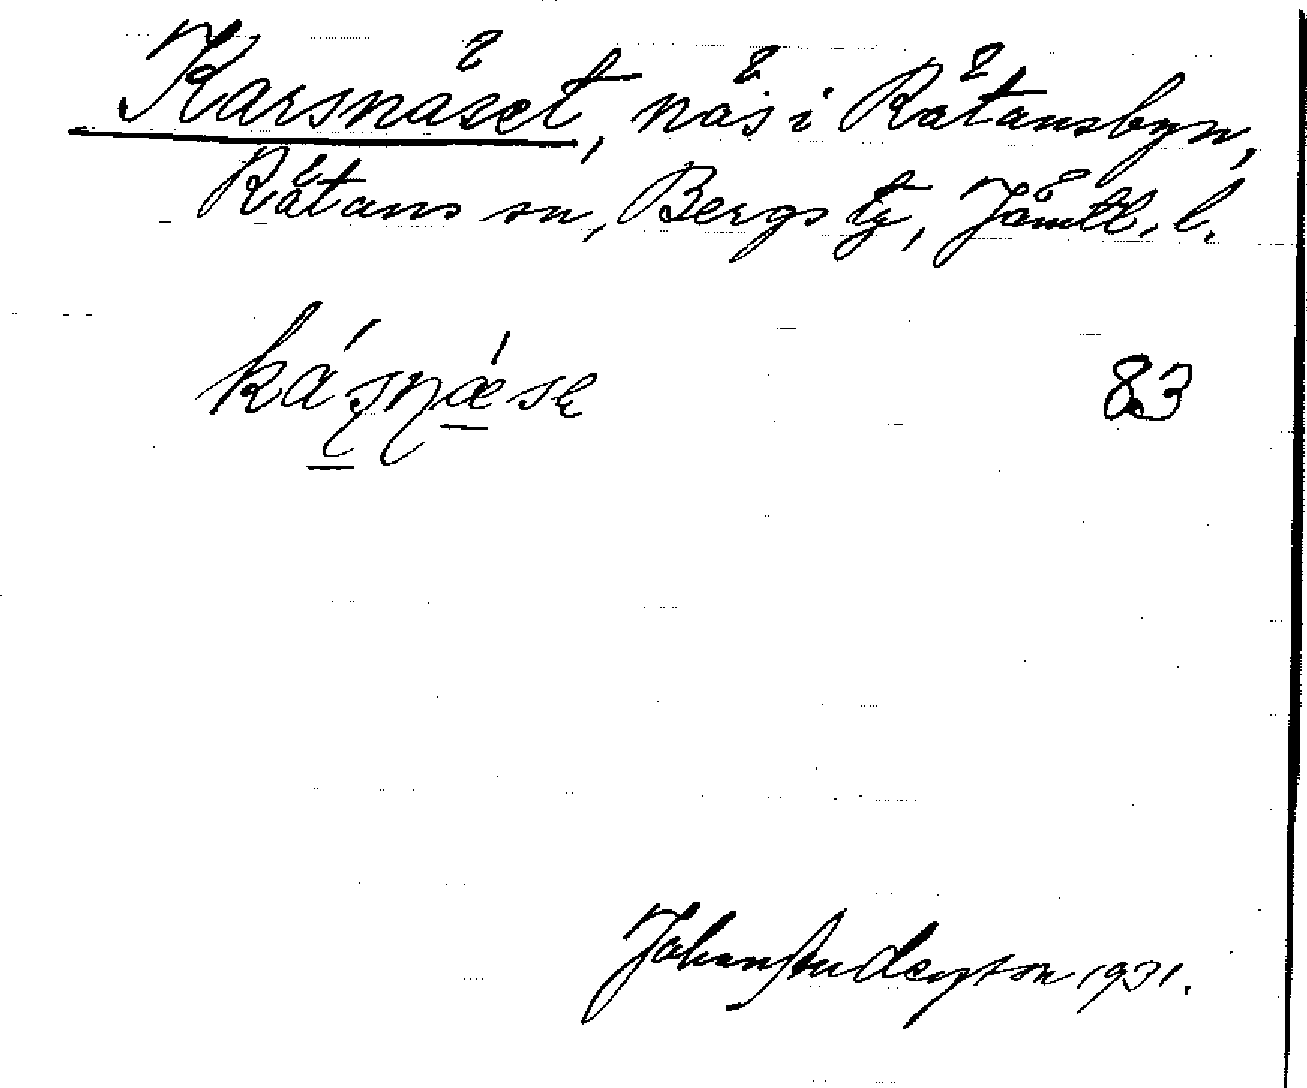 Karsnäset, näs i Rätansbyn,
Rätans sn, Bergs tg, Jämtl. l.
83
Johan Anderson 1931.